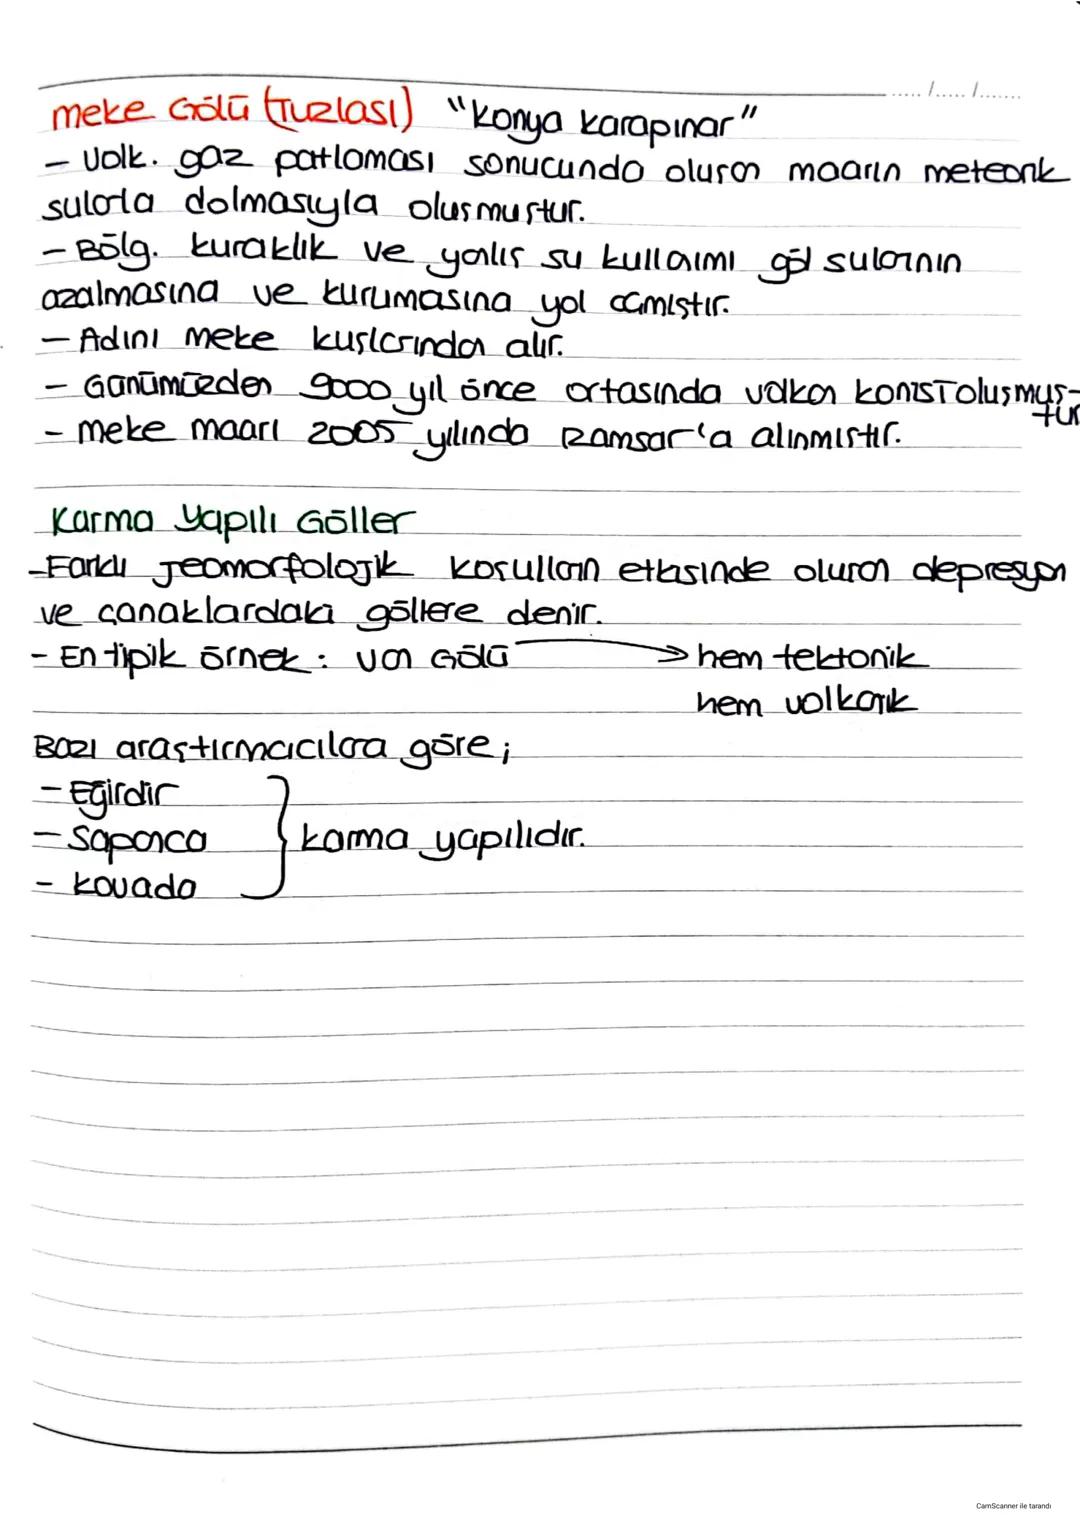 ...../...../.......
Meke Gölü (Tuzlası) "Konya Karapınar"
- Volk. gaz patlaması sonucunda oluşan maarın meteorik
sularla dolmasıyla oluşmuştur.
- Bölg. kuraklık ve yanlış su kullanımı göl sularının
azalmasına ve kurumasına yol açmıştır.
- Adını meke kuşlarından alır.
- Günümüzden 9000 yıl önce ortasında volkan konisi oluşmuş-
tur
- Meke maarı 2005 yılında Ramsar'a alınmıştır.
Karma Yapılı Göller
- Farklı Jeomorfolojik koşulların etkisinde oluşan depresyon
ve çanaklardaki göllere denir.
- En tipik örnek : Van Gölü → hem tektonik
hem volkanik
Bazı araştırmacılara göre ;
- Eğirdir
- Sapanca } karma yapılıdır.
- Kovada
CamScanner ile tarandı